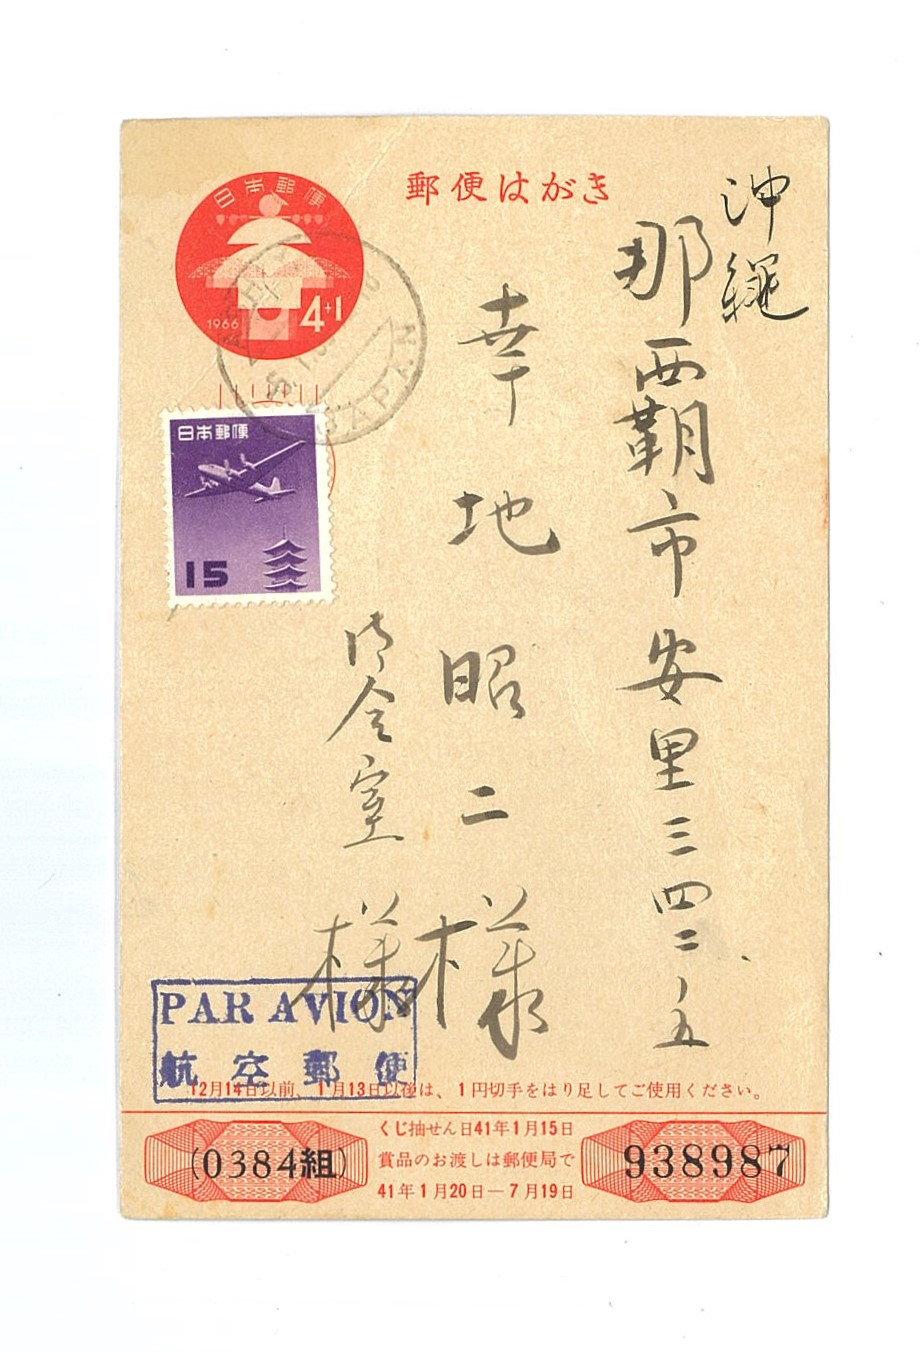 郵便はがき
日本郵便
1966
4+1
JAPAN
日本郵便
15
沖縄
那覇市安里三四二ノ五
幸地昭二様
御令室様
PAR AVION
航空郵便
12月14日以前、1月13日以後は、1円切手をはり足してご使用ください。
くじ抽せん日41年1月15日
賞品のお渡しは郵便局で
41年1月20日—7月19日
(0384組)
938987